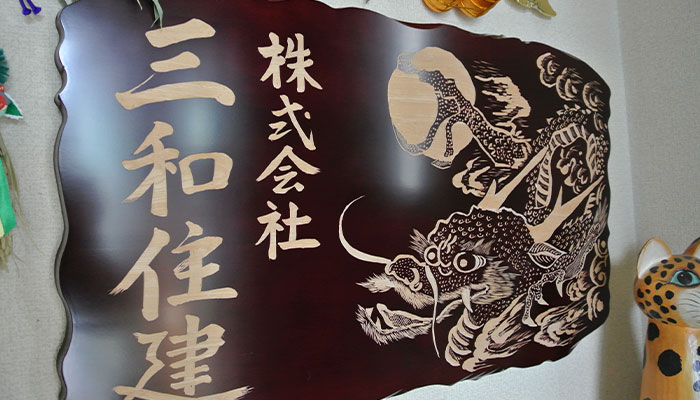 株式会社
三和住建